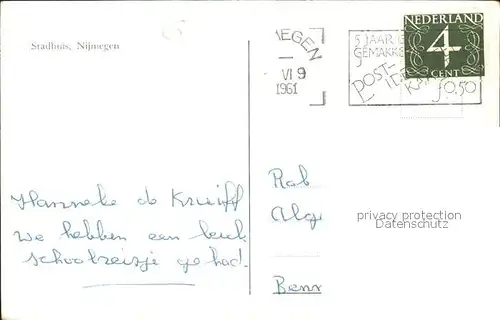 Stadhuis, Nijmegen
MEGEN
VI 9
1961
5 JAAR
GEMAKKE
POST-
f0.50
NEDERLAND
4
CENT
Hanneke de Kruiff
We hebben een leuk
schoolreisje gehad.
Rob
Alge
privacy protection
Datenschutz